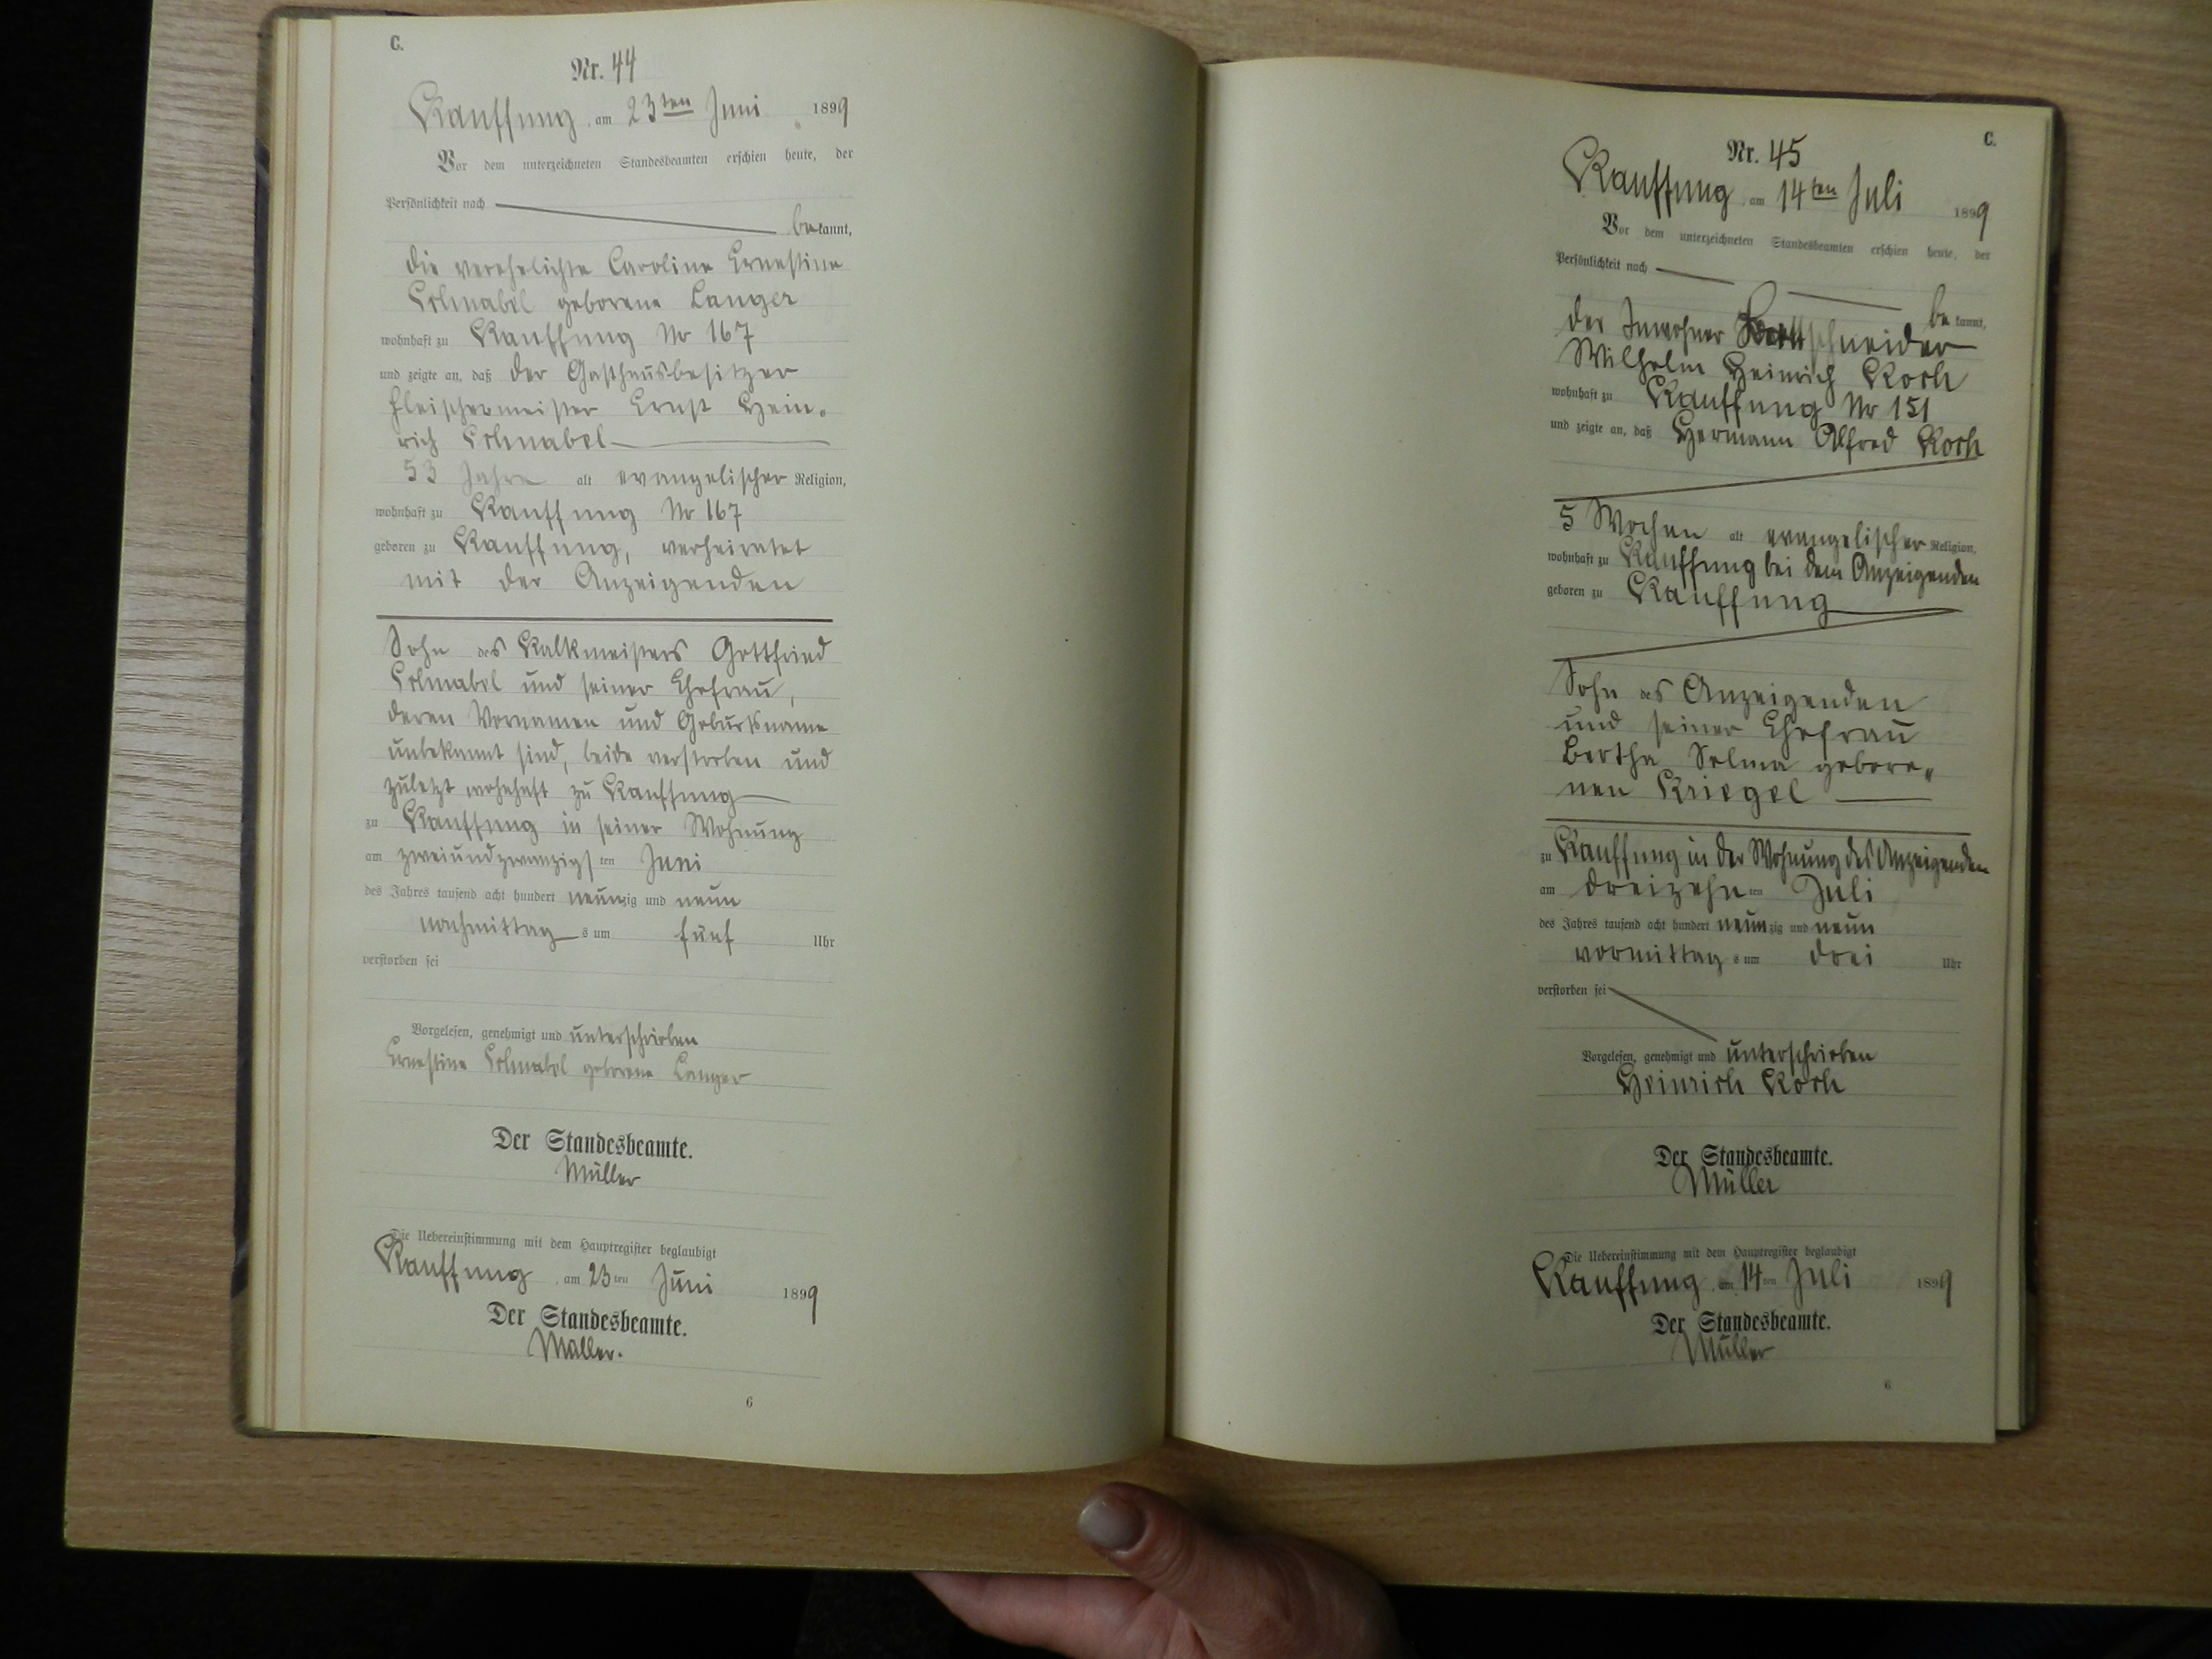 C.
Nr. 44
Kauffung, am 23ten Juni 1899
Vor dem unterzeichneten Standesbeamten erschien heute, der
Persönlichkeit nach
bekannt,
die verehelichte Caroline Ernestine
Schnabel geborene Langer
wohnhaft zu Kauffung No 167
und zeigte an, daß der Gasthausbesitzer
Fleischermeister Ernst Hein-
rich Schnabel
53 Jahre alt evangelischer Religion,
wohnhaft zu Kauffung No 167
geboren zu Kauffung, verheiratet
mit der Anzeigenden
Sohn des Kalkmeisters Gottfried
Schnabel und seiner Ehefrau,
deren Vornamen und Geburtsname
unbekannt sind, beide verstorben und
zuletzt wohnhaft zu Kauffung
zu Kauffung in seiner Wohnung
am zweiundzwanzigsten Juni
des Jahres tausend acht hundert neunzig und neun
nachmittags um fünf Uhr
verstorben sei
Vorgelesen, genehmigt und unterschrieben
Ernestine Schnabel geborene Langer
Der Standesbeamte.
Müller
Die Uebereinstimmung mit dem Hauptregister beglaubigt
Kauffung, am 23ten Juni 1899
Der Standesbeamte.
Müller.
6
C.
Nr. 45
Kauffung, am 14ten Juli 1899
Vor dem unterzeichneten Standesbeamten erschien heute, der
Persönlichkeit nach
bekannt,
der Inwohner schneider
Wilhelm Heinrich Koch
wohnhaft zu Kauffung No 151
und zeigte an, daß Hermann Alfred Koch
5 Wochen alt evangelischer Religion,
wohnhaft zu Kauffung bei dem Anzeigenden
geboren zu Kauffung
Sohn des Anzeigenden
und seiner Ehefrau
Bertha Selma gebore-
nen Kriegel
zu Kauffung in der Wohnung des Anzeigenden
am dreizehnten Juli
des Jahres tausend acht hundert neunzig und neun
vormittags um drei Uhr
verstorben sei
Vorgelesen, genehmigt und unterschrieben
Heinrich Koch
Der Standesbeamte.
Müller
Die Uebereinstimmung mit dem Hauptregister beglaubigt
Kauffung, am 14ten Juli 1899
Der Standesbeamte.
Müller
6